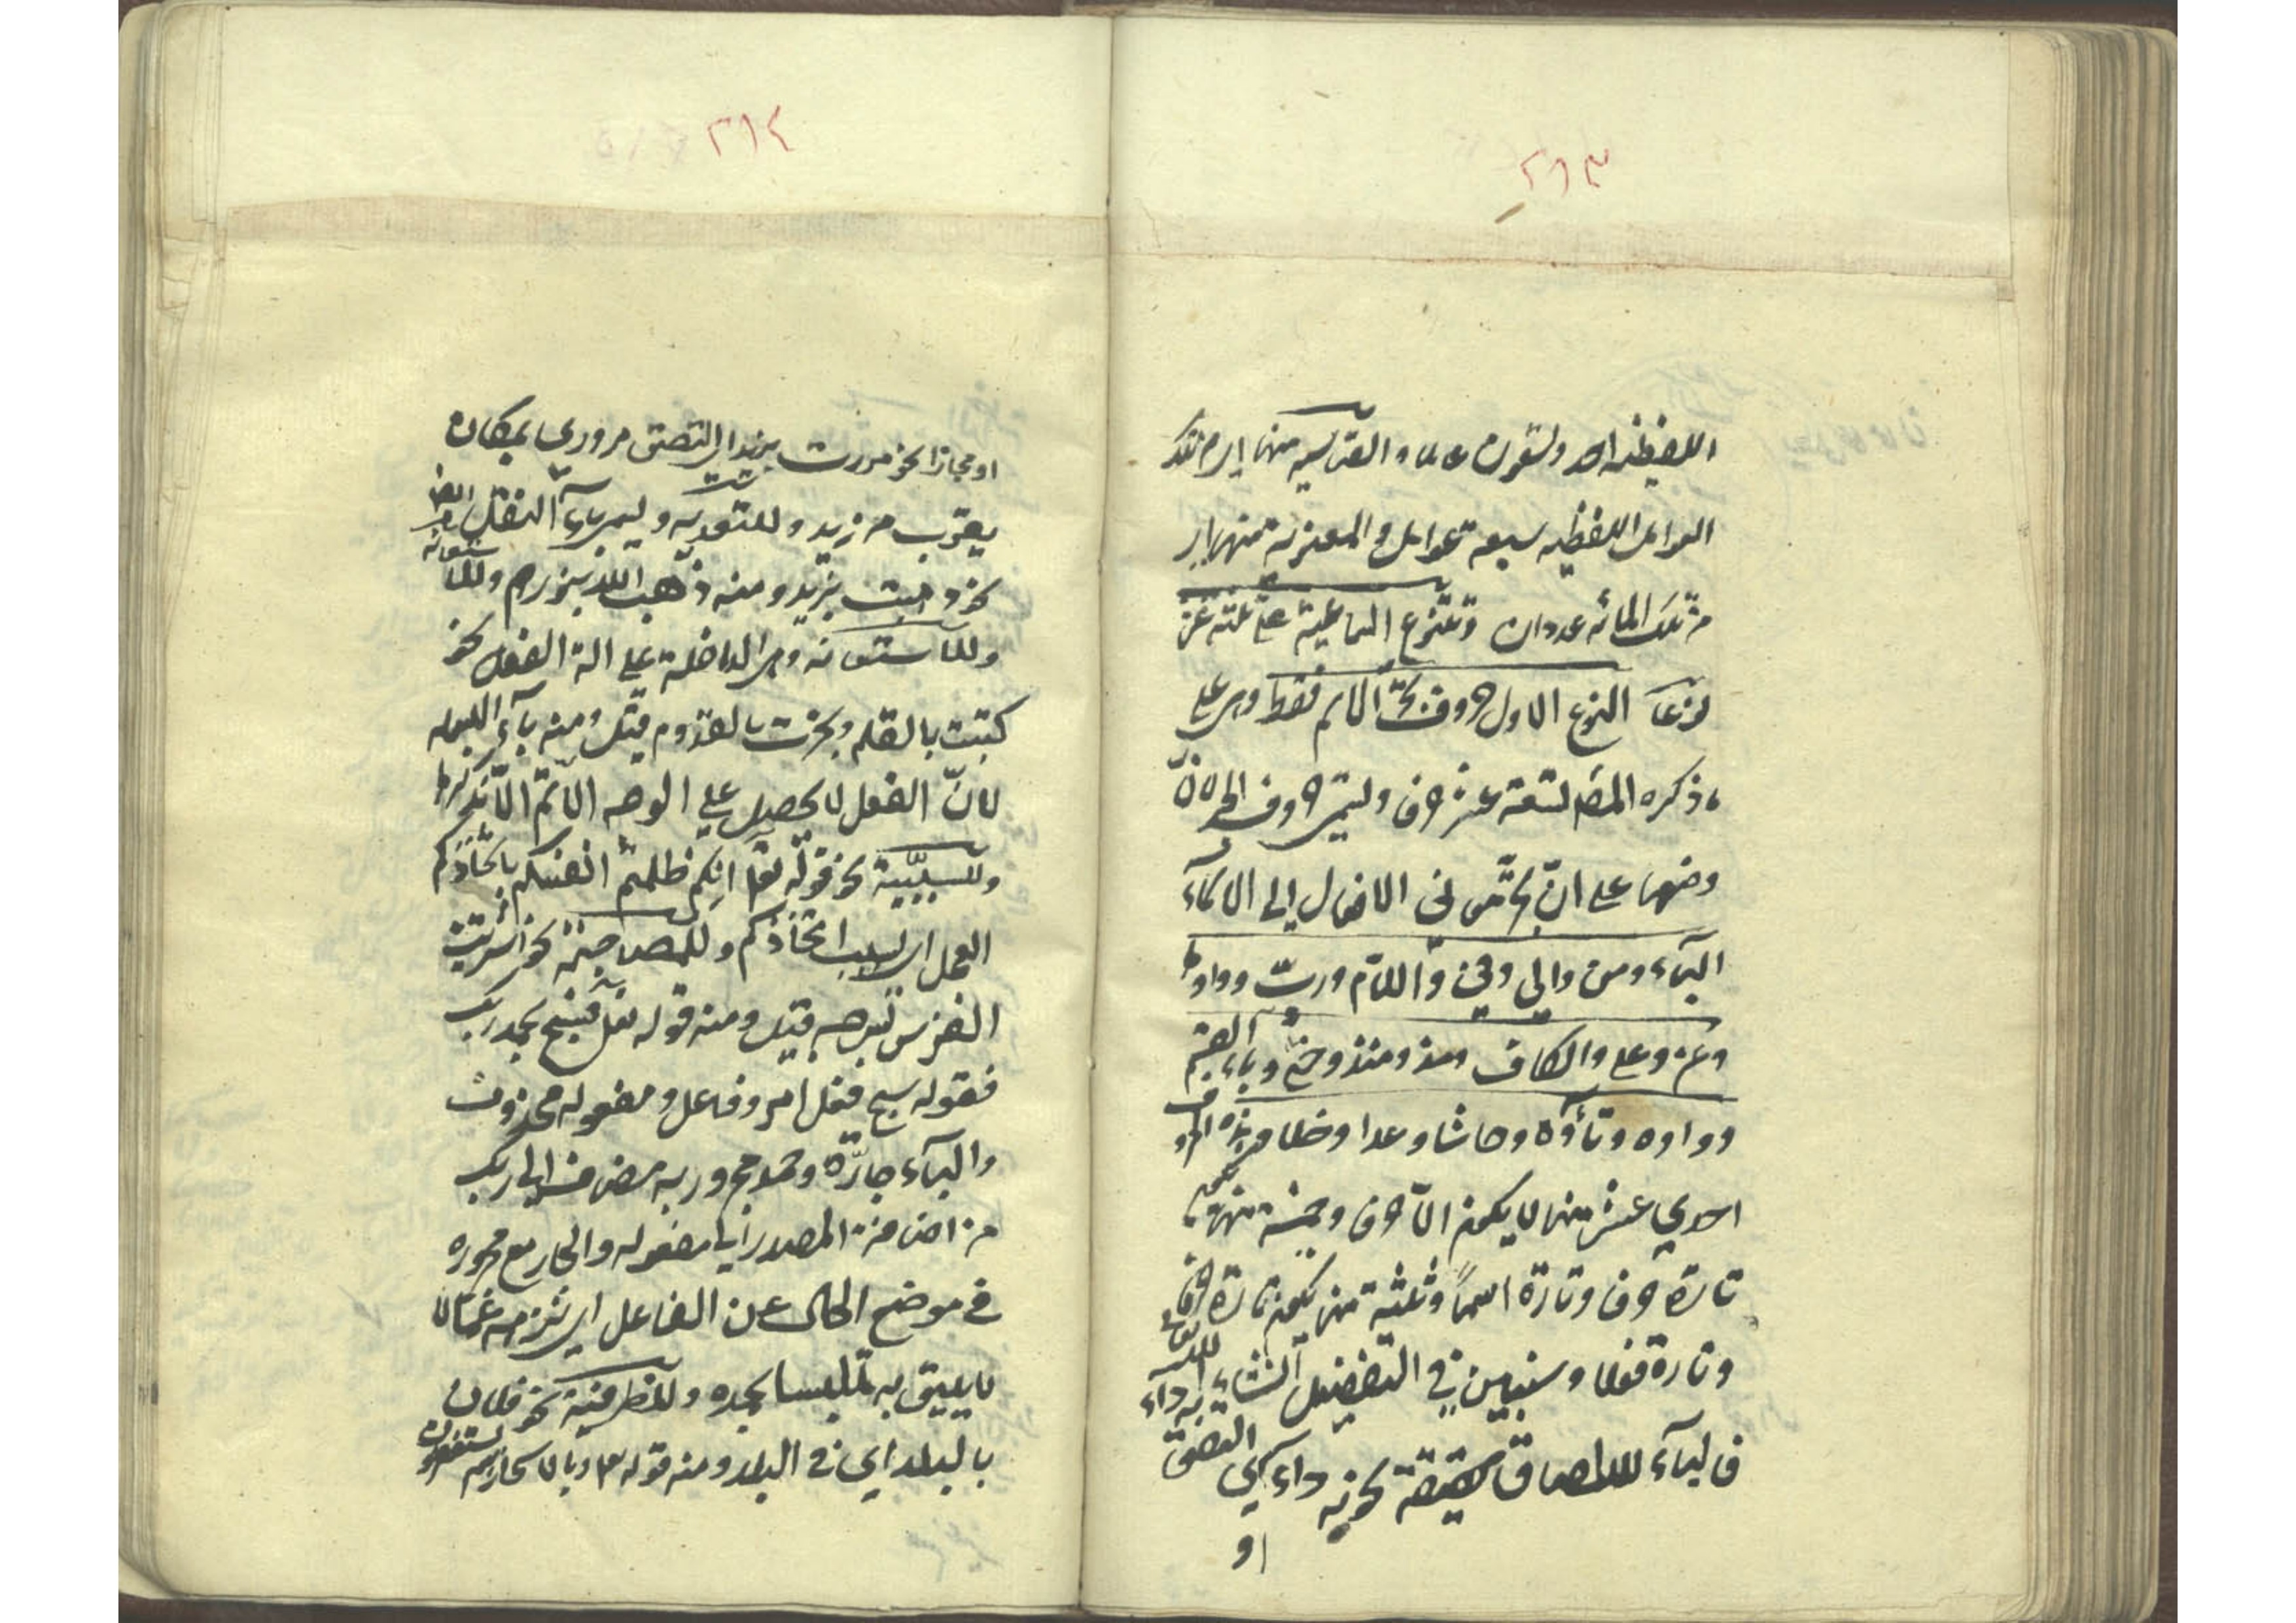 ٢١٣
اللفظية احد وتسعون عاملا والقياسية منها اي من تلك
العوامل اللفظية سبعة عوامل والمعنوية منها اي
من تلك المائة عددان وتتنوع السماعية على ثلثة عشر
نوعا النوع الاول حروف تجر الاسم فقط وهي على
ما ذكره المص تسعة عشر حرفا وتسمى حروف الجر لان
وضعها على ان تجر معنى الافعال الى الاسماء
الباء ومن والى وفي واللام ورب وواوها
وعن وعلى والكاف ومذ ومنذ وحتى وباء القسم
وواوه وتاؤه وحاشا وعدا وخلا فهذه الحروف
احدي عشر منها لا يكون الا حرفا وخمسة منها يكون
تارة حرفا وتارة اسما وثلثة منها يكون تارة حرفا
وتارة فعلا وسنبين في التفصيل انشاء الله تعالى
فالباء للالصاق حقيقة نحو به داء اي التصق به داء
او
٢١٤
او مجازا نحو مررت بزيد اي التصق مروري بمكان
يقرب من زيد وللتعدية ويسمى باء النقل ايضا
نحو ذهبت بزيد ومنه ذهب الله بنورهم
وللاستعانة وهي الداخلة على الة الفعل نحو
كتبت بالقلم ونجرت بالقدوم قيل ومنه باء البسملة
لان الفعل لا يحصل على الوجه الاتم الا بذكرها
وللسببية نحو قوله تعا انكم ظلمتم انفسكم باتخاذكم
العجل اي بسبب اتخاذكم وللمصاحبة نحو اشتريت
الفرس بسرجه قيل ومنه قوله تعا فسبح بحمد ربك
فقوله سبح فعل امر وفاعل ومفعوله محذوف
والباء جارة وحمد مجرور به مضاف الى ربك
من اضافة المصدر الى مفعوله والجار مع مجروره
في موضع الحال عن الفاعل اي نزهه عما لا
يليق به متلبسا بحمده وللظرفية نحو فلان
بالبلد اي في البلد ومنه قوله تعا وبالاسحار هم يستغفرون